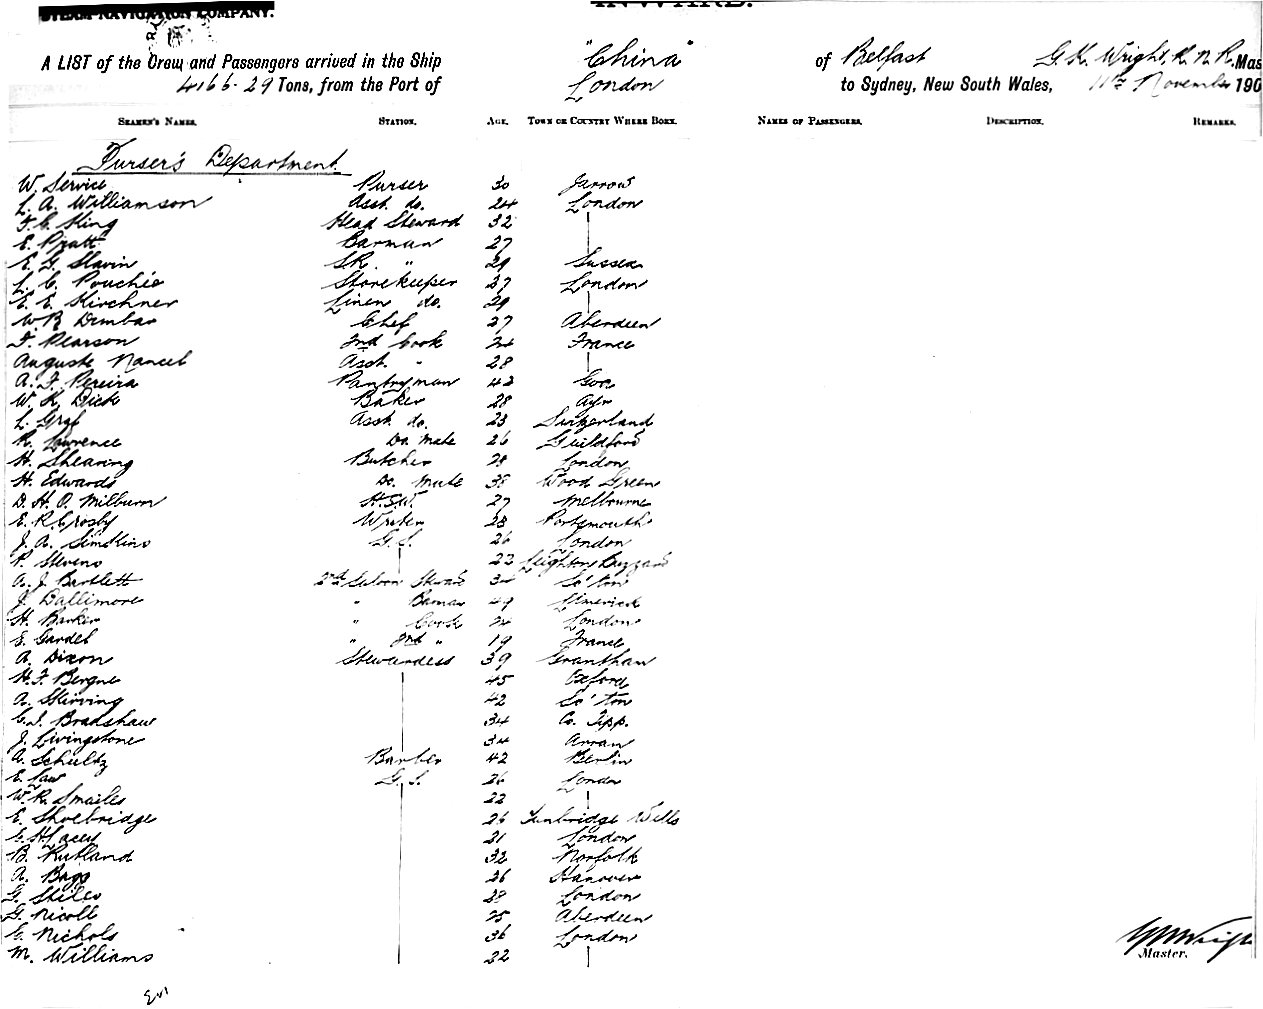 STEAM NAVIGATION COMPANY.
INWARD.
A LIST of the Crew and Passengers arrived in the Ship "China" of Belfast G. K. Wright, R. N. R. Mas
4166.29 Tons, from the Port of London to Sydney, New South Wales, 11th November 190
SEAMEN'S NAMES. STATION. AGE. TOWN OR COUNTRY WHERE BORN. NAMES OF PASSENGERS. DESCRIPTION. REMARKS.
Purser's Department
W. Service Purser 30 Jarrow
L. A. Williamson Asst. do. 24 London
F. C. King Head Steward 32
E. Pyatt Barman 27
E. G. Slavin S.R. " 29 Sussex
L. C. Pouchie Storekeeper 27 London
E. E. Kirchner Linen do. 29
W. R. Dunbar Chef 27 Aberdeen
F. Pearson 2nd Cook 24 France
Auguste Nancel Asst. " 28
A. F. Pereira Pantryman 42 Goa
W. K. Dick Baker 28 Ayr
L. Graf Asst. do. 23 Switzerland
R. Lawrence Do. Mate 26 Guildford
H. Shearing Butcher 28 London
H. Edwards Do. Mate 38 Wood Green
D. H. O. Milburn H.S.W. 27 Melbourne
E. R. Crosby Writer 23 Portsmouth
J. A. Simkins G.S. 26 London
P. Stevens 22 Leighton Buzzard
A. J. Bartlett 2nd Saloon Steward 34 So'ton
J. Dallimore " Barman 49 Limerick
H. Barker " Cook 24 London
E. Gardel " 3rd " 19 France
A. Dixon Stewardess 39 Grantham
H. F. Bergne 45 Oxford
A. Skirving 42 So'ton
C. J. Bradshaw 34 Co. Tipp.
J. Livingstone 34 Arran
A. Schultz Barber 42 Berlin
E. Law G.S. 26 London
W. R. Smailes 22
E. Shoebridge 26 Tunbridge Wells
C. H. Lacey 21 London
B. Rutland 32 Norfolk
A. Bagg 26 Hanover
G. Stiles 28 London
G. Nicoll 25 Aberdeen
C. Nichols 36 London
M. Williams 22
Master.